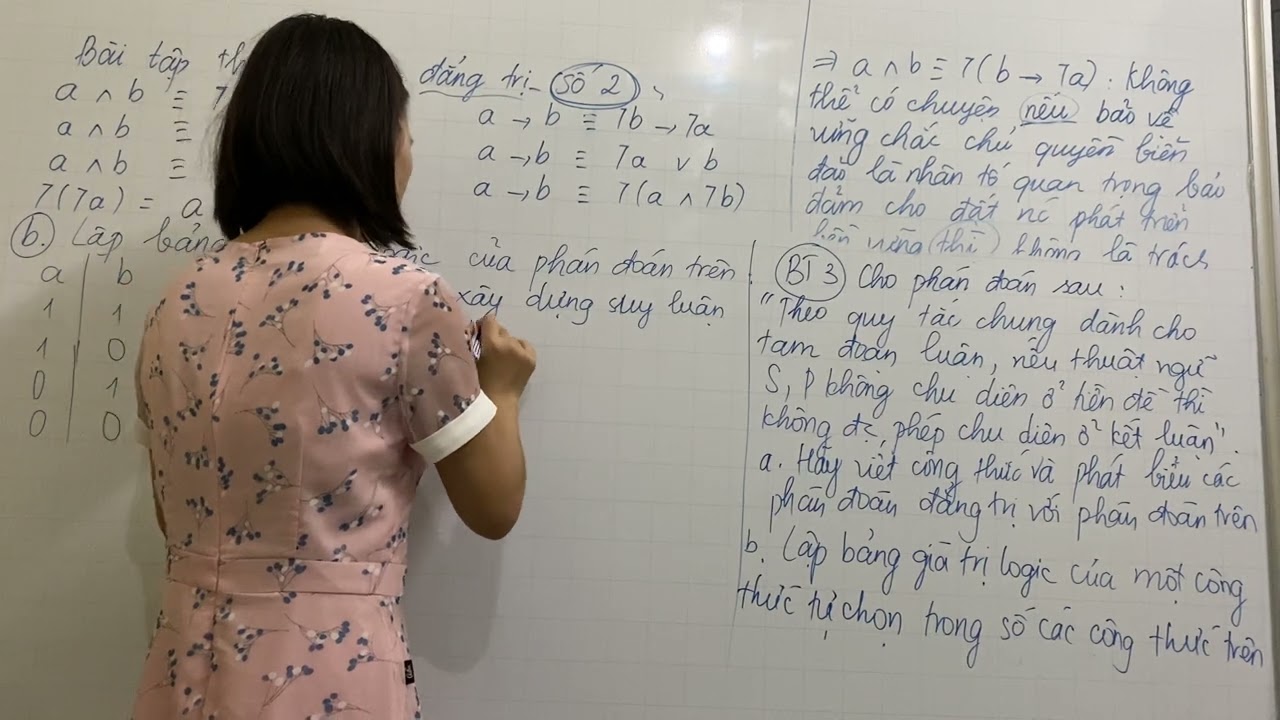 Bài tập
đẳng trị - số 2
a ∧ b ≡ 7
a ∧ b ≡
a ∧ b ≡
7(7a) = a
a → b ≡ 7b → 7a
a → b ≡ 7a v b
a → b ≡ 7(a ∧ 7b)
b. Lập bảng của phán đoán trên
xây dựng suy luận
a b
1 1
1 0
0 1
0 0
⇒ a ∧ b ≡ 7(b → 7a) : Không
thể có chuyện nếu bảo vệ
vững chắc chủ quyền biển
đảo là nhân tố quan trọng bảo
đảm cho đất nc phát triển
bền vững (thì) không là trách
BT 3 Cho phán đoán sau :
"Theo quy tắc chung dành cho
tam đoạn luận, nếu thuật ngữ
S, P không chu diên ở tiền đề thì
không đc phép chu diên ở kết luận".
a. Hãy viết công thức và phát biểu các
phán đoán đẳng trị với phán đoán trên
b. Lập bảng giá trị logic của một công
thức tự chọn trong số các công thức trên